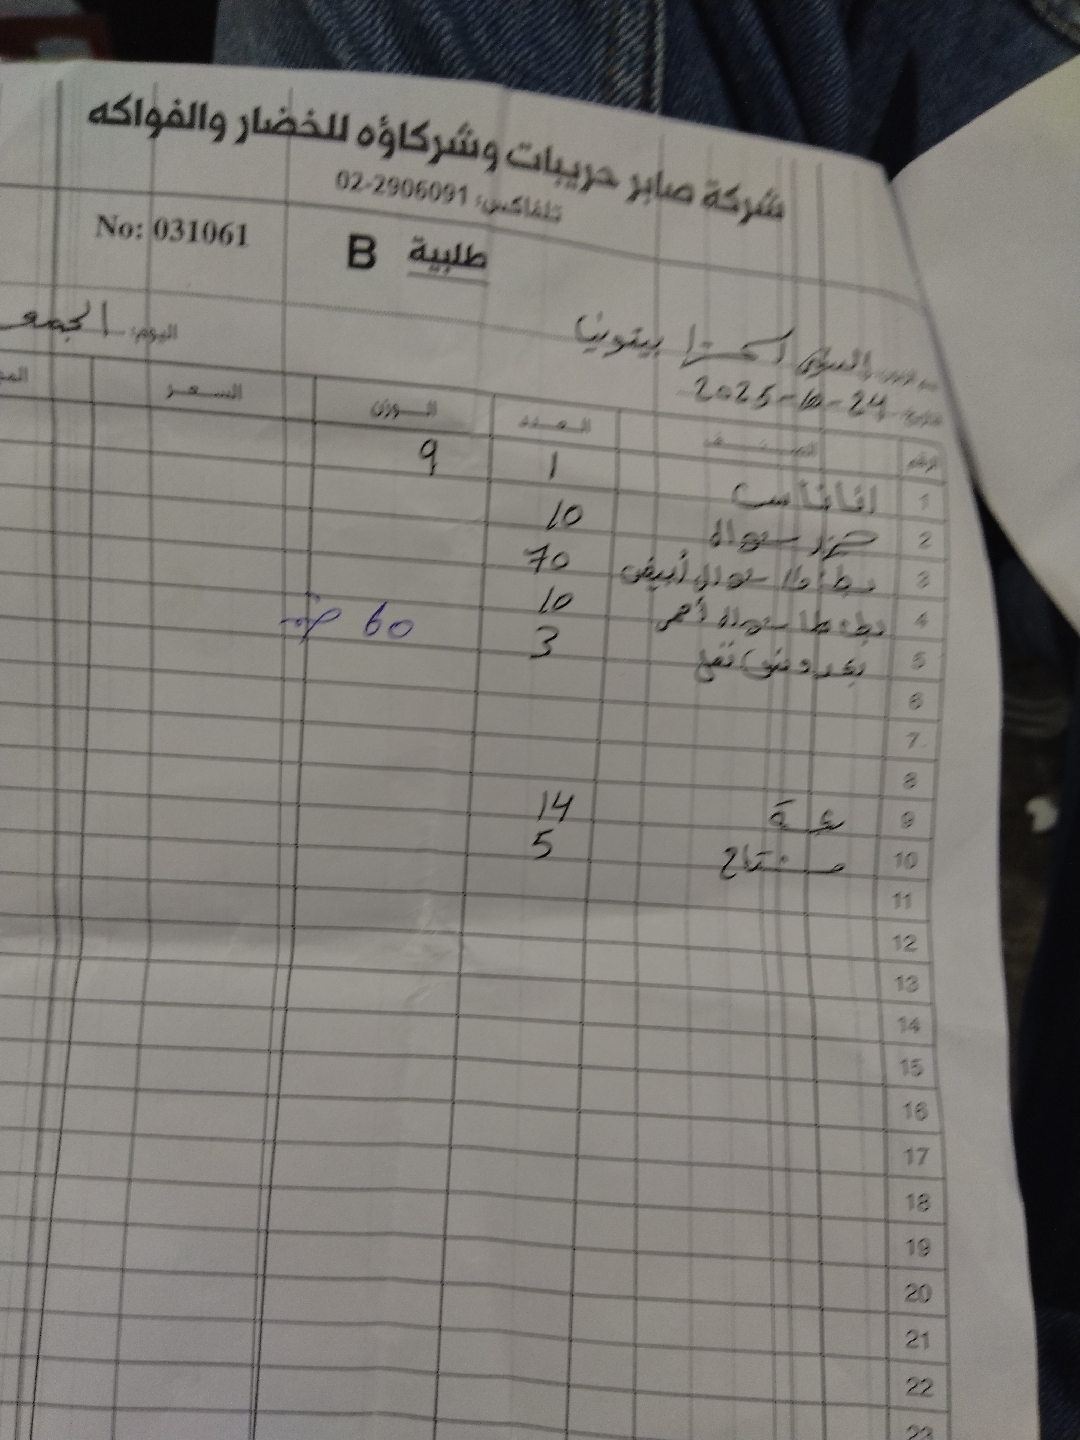 شركة صابر حريبات وشركاؤه للخضار والفواكه
تلفاكس: 02-2906091
No: 031061
طلبية B
اليوم: الجمعـ
السوق اكسترا بيتونيا
2025-10-24
الرقم الصنف العدد الوزن السعر المجـ
1 اناناس 1 9
2 جزر شوال 10
3 بطاطا شوال أبيض 70
4 بطاطا شوال أحمر 10
5 بقدونس نقل 3 60
6
7
8
9 14
10 5
11
12
13
14
15
16
17
18
19
20
21
22
23